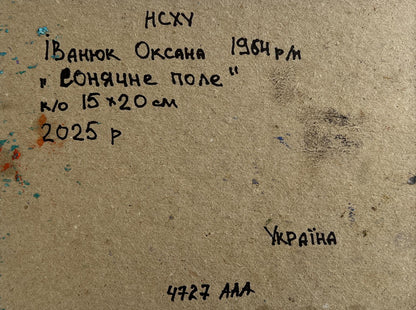 НСХУ
Іванюк Оксана 1964 р/м
„ Сонячне поле"
к/о 15 x 20 см
2025 р
Україна
4727 ААА